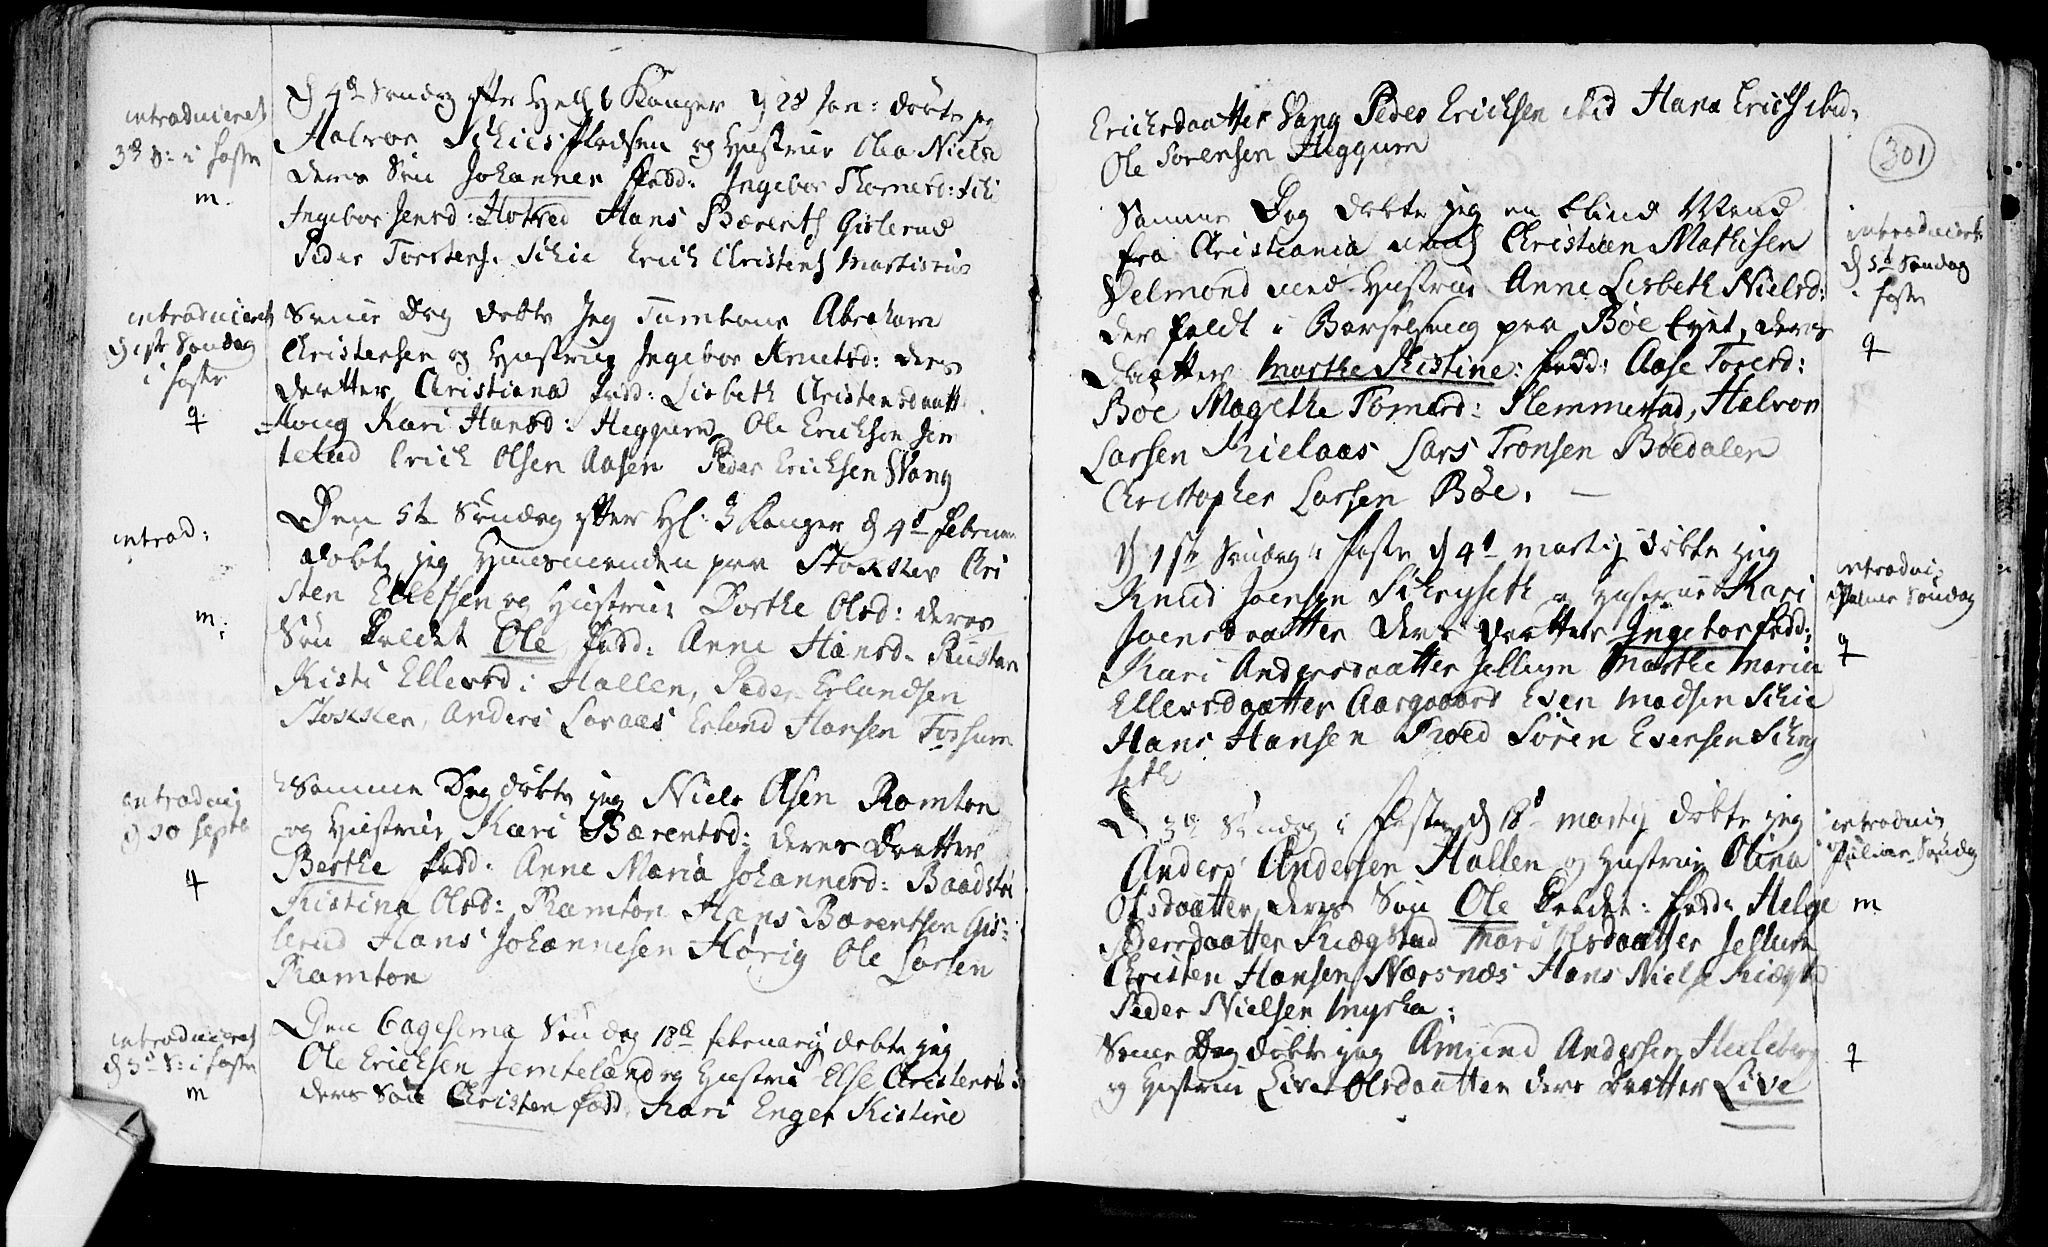 introduceret
3die S: i faste
m.
D 4de Søndag efter Hell 3 Konger d 28 Jan: døbte jeg
Halvor Schies Pladsen og Hustrue Olea Nielsd
deres Søn Johannes fadd: Ingebor Thomesd: Schi
Ingebor Jensd: Hotved Hans Bærents Gislerud
Peder Torstens. Schie Erich Christens Martisrud
introduceret
d 1ste Søndag
i faste
q
Samme Dag døbte Jeg Abraham
Christensen og Hustrue Ingebor Knutsd: deres
daatter Christiana fadd: Lisbeth Christensdaatt
Houg Kari Hansd: Heggum Ole Ericksen Jem
teland Erick Olsen Aasen Peder Ericksen Wang
introd:
m:
Den 5te Søndag efter Hl: 3 Konger d 4d Februar
døbte jeg Huusmanden paa Stokker Chri
sten Ellefsen og Hustrue Dorthe Olsd: deres
Søn kaldet Ole fadd: Anne Hansd. Rustan
Kisti Ellevsd: Hallen, Peder Erlandsen
Stokker, Anders Loraas Erland Hansen Fossum
introduc
d 30 Septb
q
Samme Dag døbte jeg Niels Olsen Ramton
og Hustrue Kari Bærentsd: deres Daatter
Berthe fadd: Anne Maria Johannesd: Baadstø
Kistina Olsd: Ramton Hans Bærentsen Gis=
lerud Hans Johannesen Hørig Ole Larsen
Ramton
introduceret
d 3d S: i faste
m
Den Søndag 18de februarij døbte jeg
Ole Ericksen Jemteland og Hustrue Else Christensd:
deres Søn Christen fadd. Kari Enger Kistine
301
Ericksdaatter Wang Peder Ericksen ibid Hans Ericks ibid:
Ole Sørensen Heggum
introduceret
d 5te Søndag
i faste
q
Samme Dag døbte jeg en blind Mand
fra Christiania navnl Christian Mathisen
Delmond med Hustrue Anne Lisbeth Nielsd:
der faldt i Barselseng paa Bøe Eyet, deres
Daatter Marthe Kistine: fadd: Aase Toresd:
Bøe Magrethe Tomesd: Slemmestad, Halvor
Larsen Kielaas Lars Tronsen Bøedalen
Christopher Larsen Bøe.
introduc
Palme Søndag
q
D 1ste Søndag i Faste d 4d Martij døbte jeg
Knud Joensen Schryseth og Hustrue Kari
Joensdaatter deres daatter Ingebor fadd:
Kari Andersdaatter Jellum Marthe Maria
Ellevsdaatter Aasgaard Even Madsen Schie
Hans Hansen Søren Evensen Schry
seth
introduc
Palme Søndag
m
D 3de Søndag i Faste d 18d Martij døbte jeg
Anders Andersen Hallen og Hustrue Olina
Olsdaatter deres Søn Ole kaldet: fadd: Helge
Pedersdaatter Kiægstad Mari Olsdaatter Jellum
Christen Hansen Nærsnæs Hans Niels Kiægst
Peder Nielsen Myrha:
q
Samme Dag døbte jeg Amund Andersen
og Hustrue Live Olsdaatter deres Daatter Live